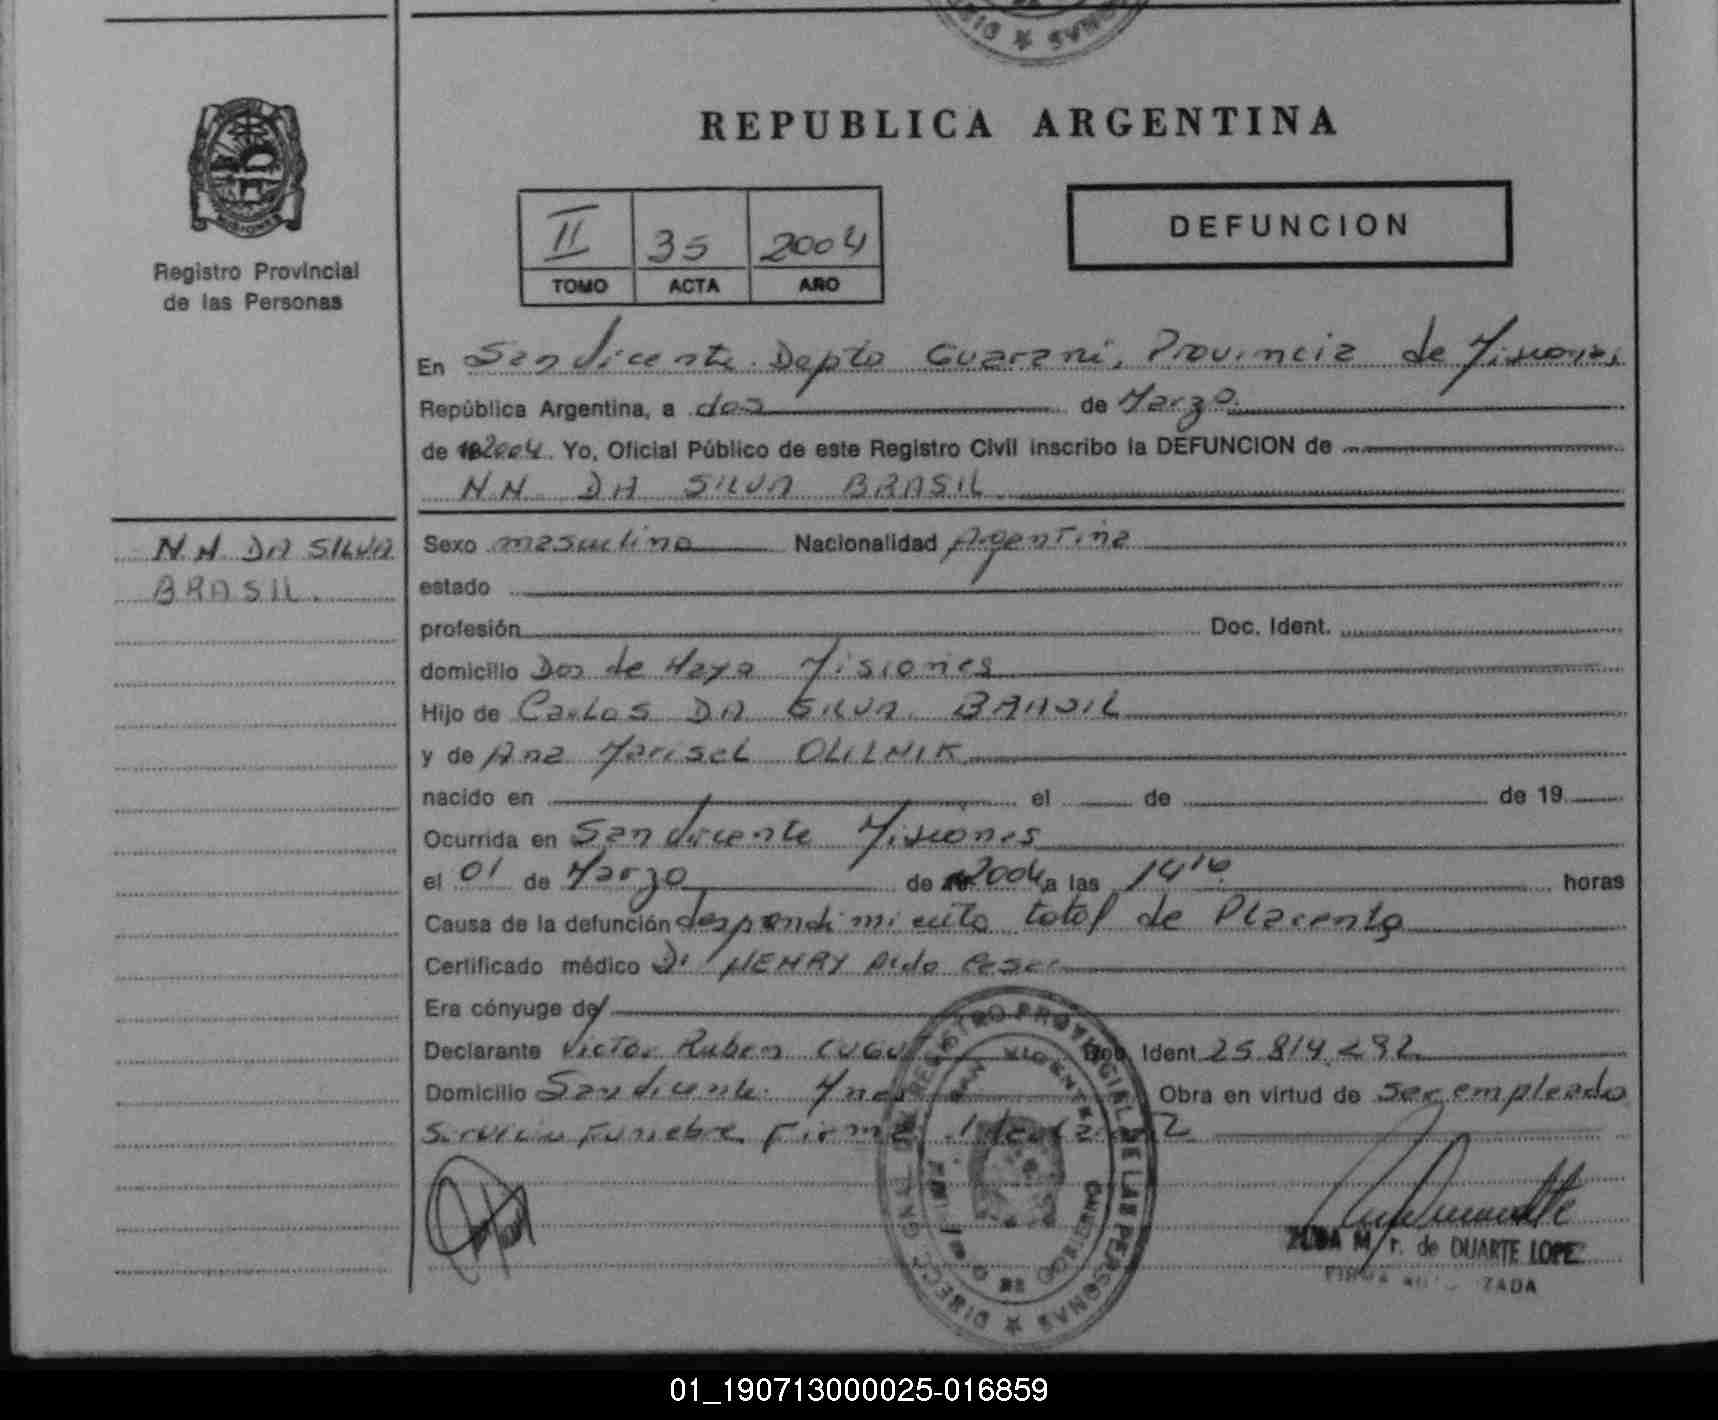 REPUBLICA ARGENTINA
II 35 2004
TOMO ACTA AÑO
DEFUNCION
Registro Provincial
de las Personas
En San Vicente Depto Guaraní, Provincia de Misiones
República Argentina, a dos de Marzo
de 2004. Yo, Oficial Público de este Registro Civil inscribo la DEFUNCION de
N.N. DA SILVA BRASIL
N.N DA SILVA
BRASIL.
Sexo masculino Nacionalidad Argentina
estado
profesión Doc. Ident.
domicilio Dos de Mayo Misiones
Hijo de Carlos DA SILVA BRASIL
y de Ana Marisel OLILNIK
nacido en el de de 19
Ocurrida en San Vicente Misiones
el 01 de Marzo de 2004 a las 14 10 horas
Causa de la defunción desprendimiento total de Placenta
Certificado médico Dr HENRY Aldo
Era cónyuge de
Declarante Victor Ruben Doc. Ident 25.814.292
Domicilio San Vicente Mnes Obra en virtud de ser empleado
Servicio Funebre Firma
DIRECC. GRAL. DEL REGISTRO PROVINCIAL DE LAS PERSONAS
SAN VICENTE
M. r. de DUARTE LOPEZ
01_190713000025-016859